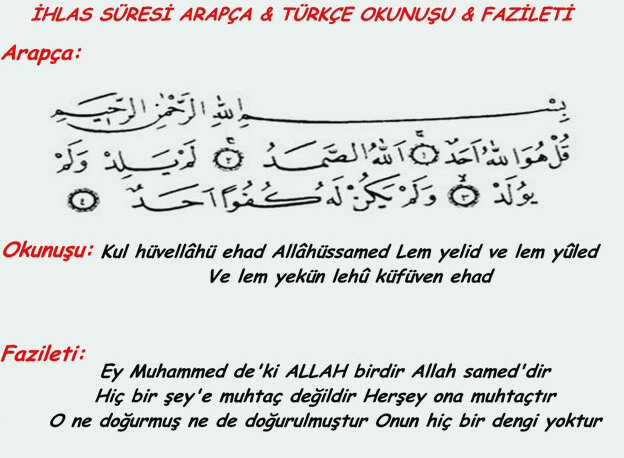 İHLAS SÜRESİ ARAPÇA & TÜRKÇE OKUNUŞU & FAZİLETİ
Arapça:
بِسْمِ اللهِ الرَّحْمٰنِ الرَّحِيمِ
قُلْ هُوَ اللهُ اَحَدٌ ﴿١﴾ اَللهُ الصَّمَدُ ﴿٢﴾ لَمْ يَلِدْ وَلَمْ
يُولَدْ ﴿٣﴾ وَلَمْ يَكُنْ لَهُ كُفُوًا اَحَدٌ ﴿٤﴾
Okunuşu: Kul hüvellâhü ehad Allâhüssamed Lem yelid ve lem yûled
Ve lem yekün lehû küfüven ehad
Fazileti:
Ey Muhammed de'ki ALLAH birdir Allah samed'dir
Hiç bir şey'e muhtaç değildir Herşey ona muhtaçtır
O ne doğurmuş ne de doğurulmuştur Onun hiç bir dengi yoktur